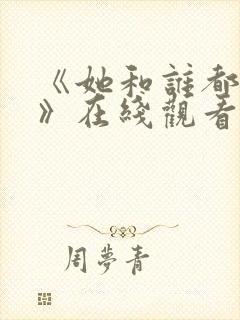 《她和誰都
》在綫觀看
周夢青